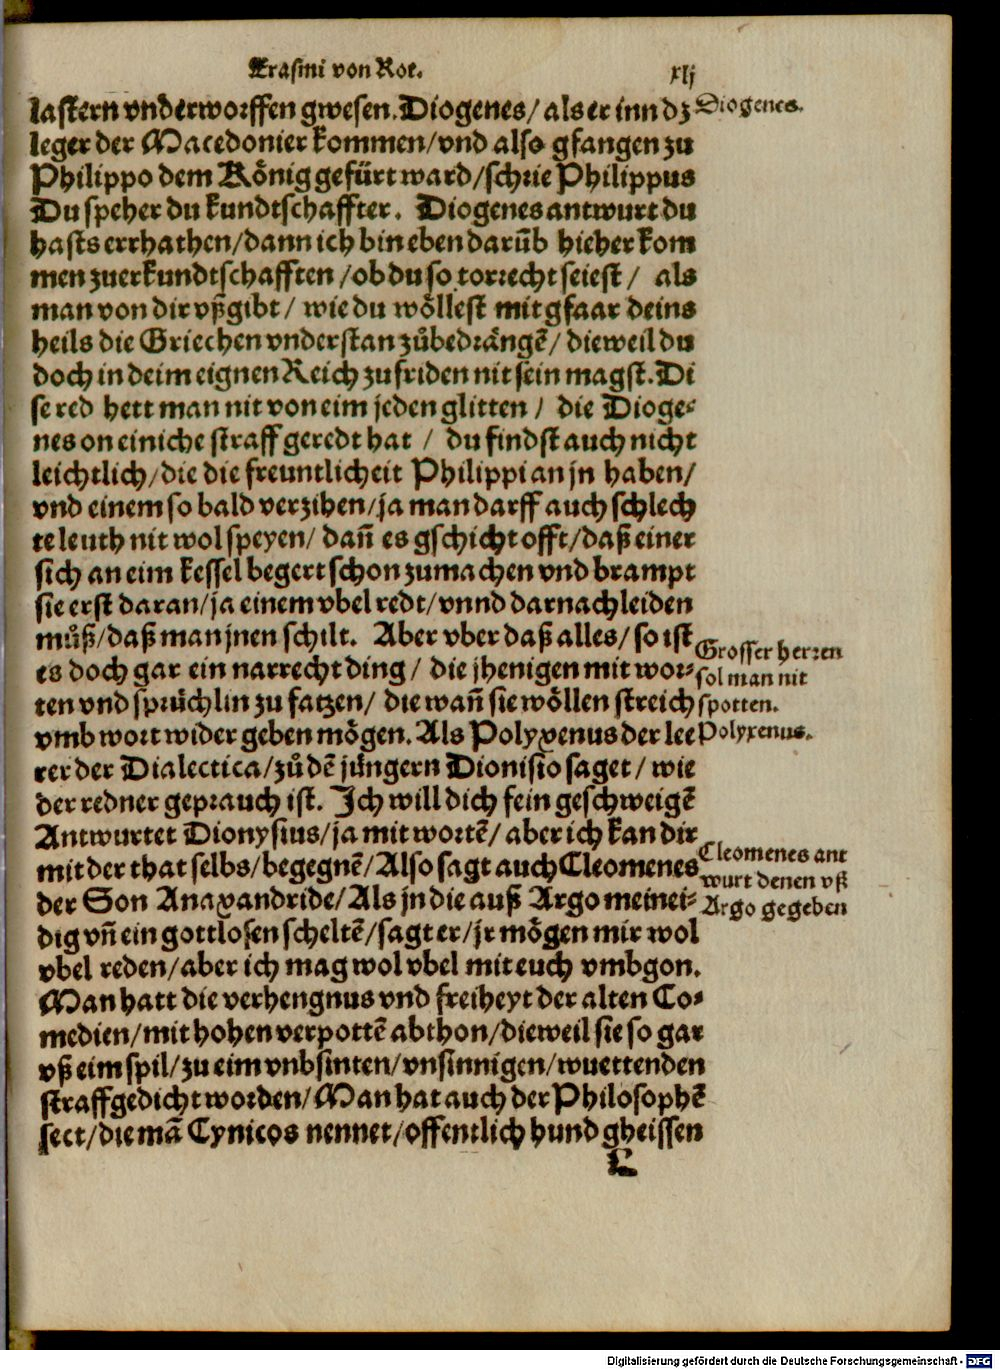 Erasmi von Rot.
xlj
lastern vnderworffen gwesen. Diogenes/ als er inn dz
Diogenes.
leger der Macedonier kommen/vnd also gfangen zu
Philippo dem Kőnig gefürt ward/schrie Philippus
Du speher du kundtschaffter. Diogenes antwurt du
hasts errhathen/dann ich bin eben darūb hieher kom
men zuerkundtschafften /ob du so torrecht seiest/ als
man von dir vßgibt/ wie du wöllest mit gfaar deins
heils die Griechen vnderstan zůbedrängē/ dieweil du
doch in deim eignen Reich zu friden nit sein magst. Di
se red hett man nit von eim jeden glitten / die Dioge⸗
nes on einiche straff geredt hat / du findst auch nicht
leichtlich/die die freuntlicheit Philippi an jn haben/
vnd einem so bald verzihen/ja man darff auch schlech
te leuth nit wol speyen/ dañ es gschicht offt/daß einer
sich an eim kessel begert schon zumachen vnd brampt
sie erst daran/ja einem vbel redt/vnnd darnach leiden
můß/daß man jnen schilt. Aber vber daß alles/ so ist
es doch gar ein narrecht ding/ die jhenigen mit wor⸗
ten vnd sprüchlin zu fatzen/ die wañ sie wöllen streich
vmb wort wider geben mögen. Als Polyxenus der lee
Grosser herren
sol man nit
spotten.
Polyxenus.
rer der Dialectica/zů dē jüngern Dionisio saget/ wie
der redner geprauch ist. Ich will dich fein geschweigē
Antwurtet Dionysius/ja mit wortē/ aber ich kan dir
mit der that selbs/begegnē/Also sagt auch Cleomenes
der Son Anaxandride/Als jn die auß Argo meinei⸗
Cleomenes ant
wurt denen vß
Argo gegeben
dig vñ ein gottlosen scheltē/sagt er/jr mögen mir wol
vbel reden/aber ich mag wol vbel mit euch vmbgon.
Man hatt die verhengnus vnd freiheyt der alten Co⸗
medien/mit hohen verpottē abthon/dieweil sie so gar
vß eim spil/zu eim vnbsinten/vnsinnigen/wuettenden
straffgedicht worden/Man hat auch der Philosophē
sect/die mā Cynicos nennet/offentlich hund gheissen
L
Digitalisierung gefördert durch die Deutsche Forschungsgemeinschaft - DFG